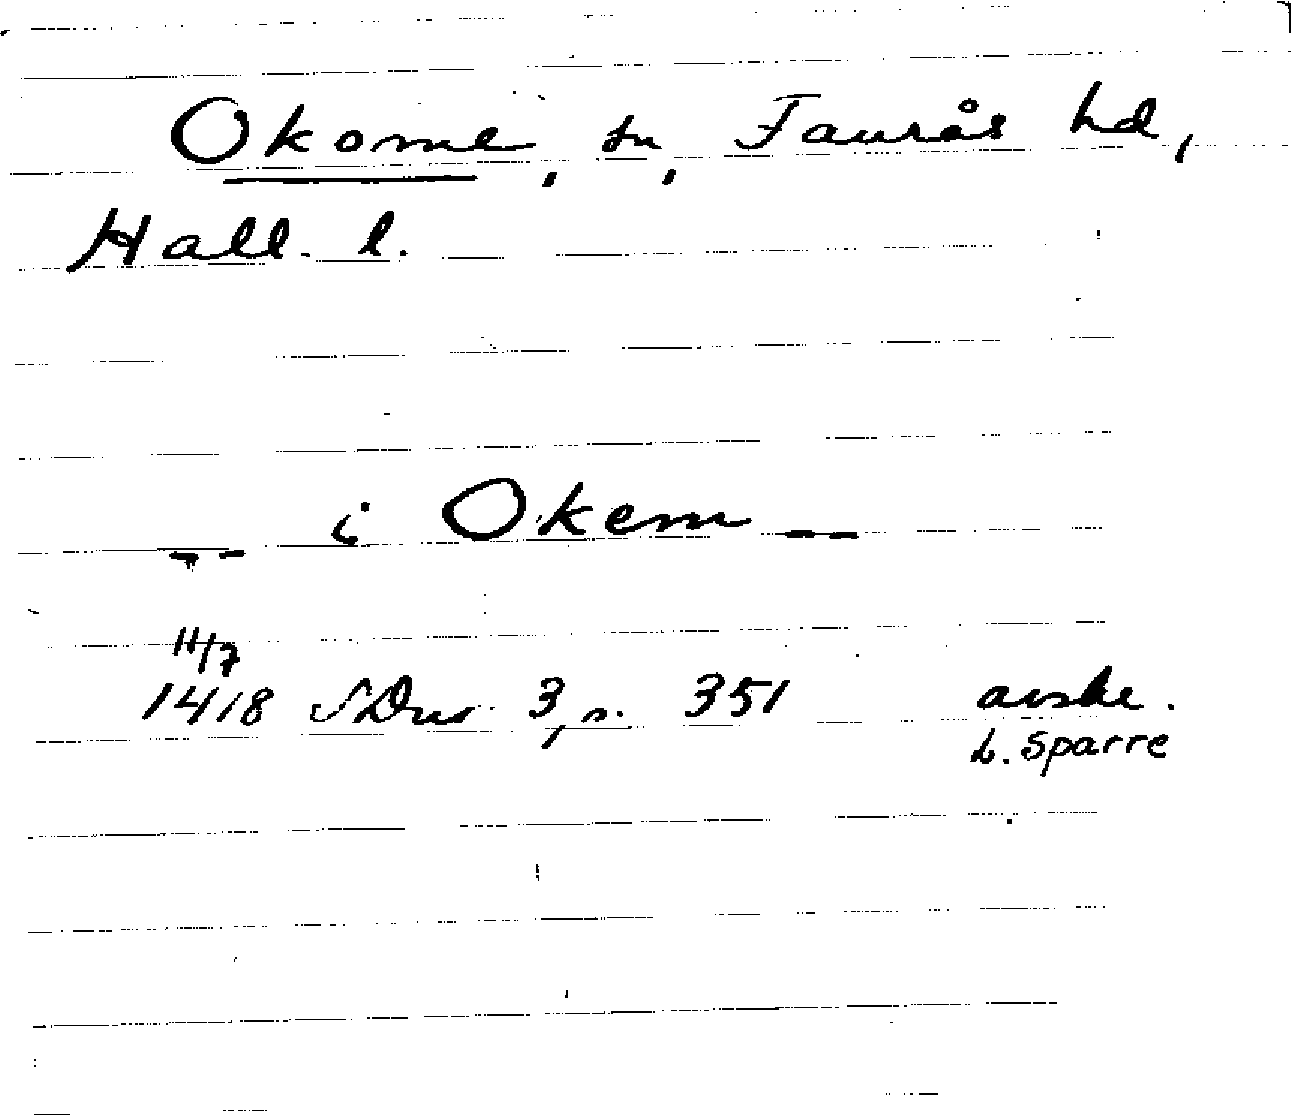 Okome, sn, Faurås hd,
Hall. l.
-- i Okem --
11/7
1418 SDns 3, s. 351 avskr.
L. Sparre